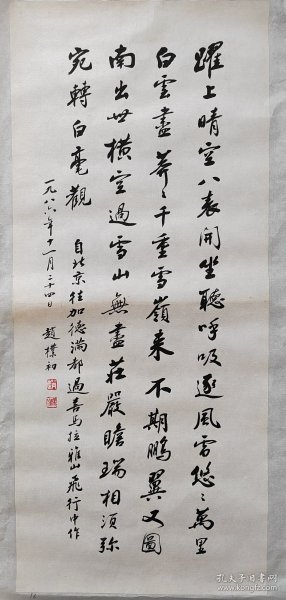 躍上晴空八表開坐聽呼吸逐風雷悠〻萬里
白雲盡莽〻千重雪嶺來不期鵬翼又圖
南出世橫空過雪山無盡莊嚴瞻瑞相須彌
宛轉白毫觀
自北京往加德滿都過喜馬拉雅山飛行中作
一九八六年十一月二十四日
趙樸初
孔夫子旧书网
kongfz.com